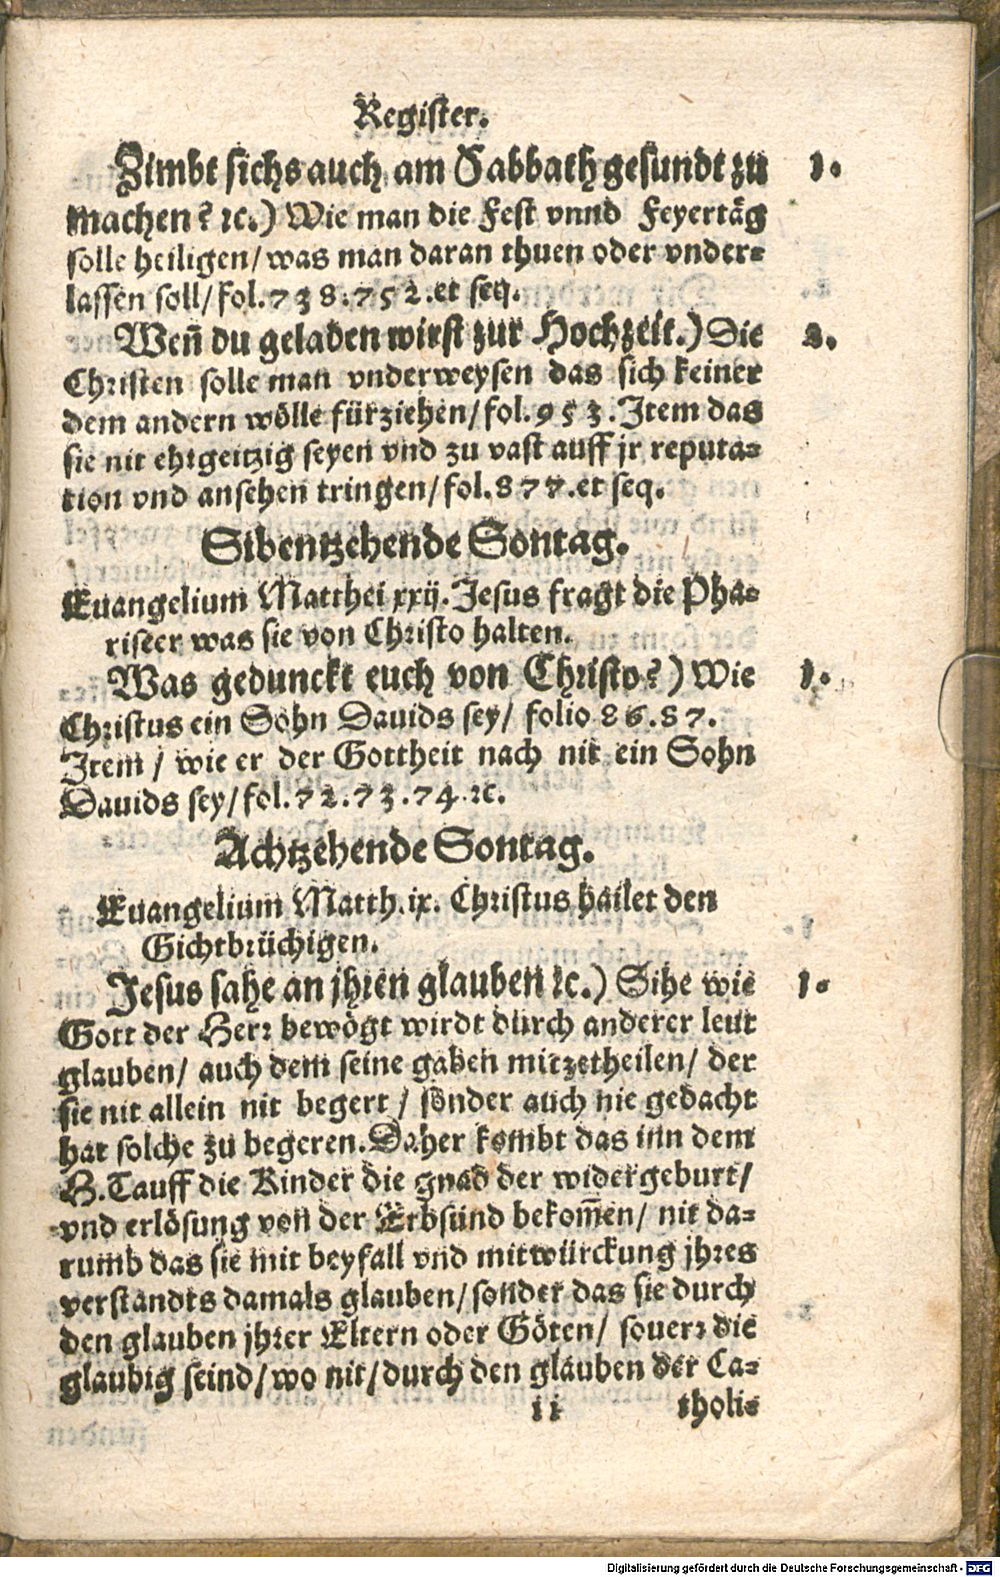 Register.
Zimbt sichs auch am Sabbath gesundt zu 1.
machen? ꝛc.) Wie man die Fest vnnd Feyertäg
solle heiligen/ was man daran thuen oder vnder-
lassen soll/ fol. 738. 752. et seq.
Weñ du geladen wirst zur Hochzeit.) Die 2.
Christen solle man vnderweysen das sich keiner
dem andern wölle fürziehen/ fol. 953. Item das
sie nit ehrgeitzig seyen vnd zu vast auff jr reputa-
tion vnd ansehen tringen/ fol. 877. et seq.
Sibentzehende Sontag.
Euangelium Matthei xxij. Jesus fragt die Pha-
riseer was sie von Christo halten.
Was gedunckt euch von Christo?) Wie 1.
Christus ein Sohn Dauids sey/ folio 86. 87.
Item/ wie er der Gottheit nach nit ein Sohn
Dauids sey/ fol. 72. 73. 74. ꝛc.
Achtzehende Sontag.
Euangelium Matth. ix. Christus hailet den
Gichtbrüchigen.
Jesus sahe an jhren glauben ꝛc.) Sihe wie 1.
Gott der Herr bewögt wirdt durch anderer leut
glauben/ auch dem seine gaben mitzetheilen/ der
sie nit allein nit begert/ sonder auch nie gedacht
hat solche zu begeren. Daher kombt das inn dem
H. Tauff die Kinder die gnad der widergeburt/
vnd erlösung von der Erbsünd bekom̃en/ nit da-
rumb das sie mit beyfall vnd mitwürckung jhres
verstandts damals glauben/ sonder das sie durch
den glauben jhrer Eltern oder Göten/ souerr die
glaubig seind/ wo nit/ durch den glauben der Ca-
ii tholi-
Digitalisierung gefördert durch die Deutsche Forschungsgemeinschaft - DFG